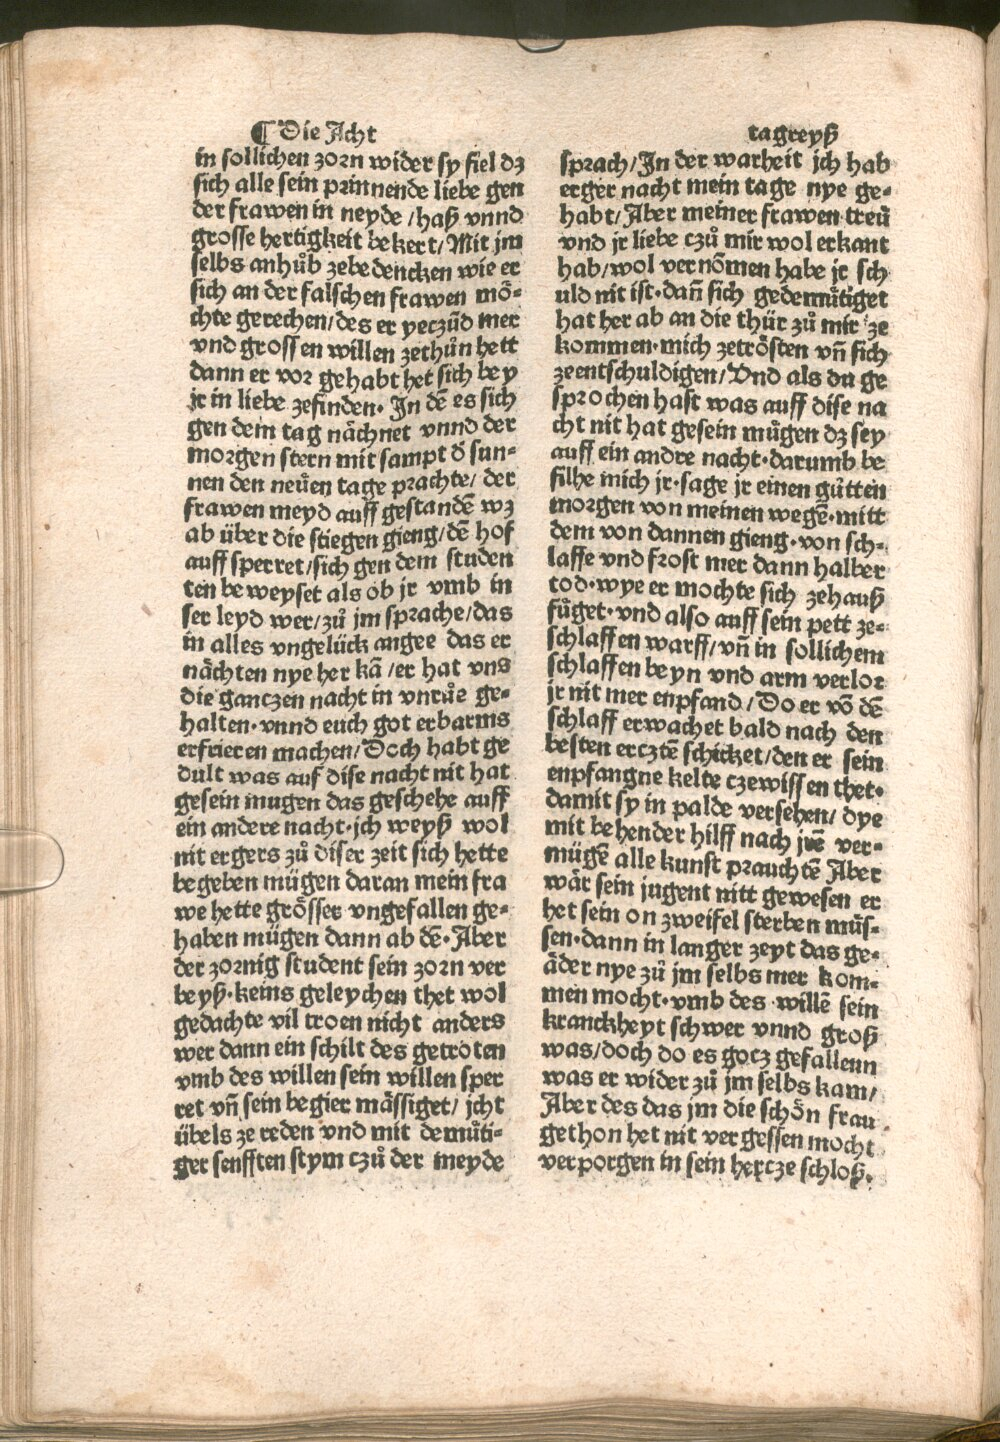 ¶ Die Acht
in sollichen zorn wider sy fiel dz
sich alle sein prinnende liebe gen
der frawen in neyde / haß vnnd
grosse hertigkeit bekert / Mit jm
selbs anhůb zebedencken wie er
sich an der falschen frawen mö⸗
chte gerechen / des er yeczūd mer
vnd grossen willen zethůn hett
dann er vor gehabt het sich bey
jr in liebe zefinden. In dē es sich
gen dem tag nāchnet vnnd der
morgen stern mit sampt d̕ sun⸗
nen den neüen tage prachte / der
frawen meyd auff gestandē wz
ab über die stiegen gieng / dē hof
auff sperret / sich gen dem studen
ten beweyset als ob jr vmb in
ser leyd wer / zů jm sprache / das
in alles vngelück angee das er
nächten nye her kā / er hat vns
die ganczen nacht in vnrůe ge⸗
halten. vnnd euch got erbarms
erfrieren machen / Doch habt ge
dult was auf dise nacht nit hat
gesein mugen das geschehe auff
ein andere nacht. ich weyß wol
nit ergers zů diser zeit sich hette
begeben mügen daran mein fra
we hette grösser vngefallen ge⸗
haben mügen dann ab dē. Aber
der zornig student sein zorn ver
beyß. keins geleychen thet wol
gedachte vil troen nicht anders
wer dann ein schilt des getroten
vmb des willen sein willen sper
ret vn̄ sein begier mässiget / jcht
übels ze reden vnd mit demůti⸗
ger senfften stym czů der meyde
tagreyß
sprach / In der warheit jch hab
erger nacht mein tage nye ge⸗
habt / Aber meiner frawen treü
vnd jr liebe czů mir wol erkant
hab / wol vernōmen habe jr sch
uld nit ist. dan̄ sich gedemütiget
hat her ab an die thür zů mir ze
kommen. mich zetrösten vn̄ sich
zeentschuldigen / Vnd als du ge
sprochen hast was auff dise na
cht nit hat gesein mügen dz sey
auff ein andre nacht. darumb be
filhe mich jr. sage jr einen gůtten
morgen von meinen wegē. mitt
dem von dannen gieng. von sch⸗
laffe vnd frost mer dann halber
tod. wye er mochte sich zehauß
fůget. vnd also auff sein pett ze⸗
schlaffen warff / vn̄ in sollichem
schlaffen beyn vnd arm verlor
jr nit mer enpfand / Do er vō dē
schlaff erwachet bald nach den
besten ercztē schicket / den er sein
enpfangne kelte czewissen thet.
damit sy in palde versehen / dye
mit behender hilff nach jrē ver⸗
mügē alle kunst prauchtē Aber
wär sein jugent nitt gewesen er
het sein on zweifel sterben müs⸗
sen. dann in langer zeyt das ge⸗
äder nye zů jm selbs mer kom⸗
men mocht. vmb des willē sein
kranckheyt schwer vnnd groß
was / doch do es gotz gefallenn
was er wider zů jm selbs kam /
Aber des das jm die schön frau
gethon het nit vergessen mocht
verporgen in sein hertze schloß.